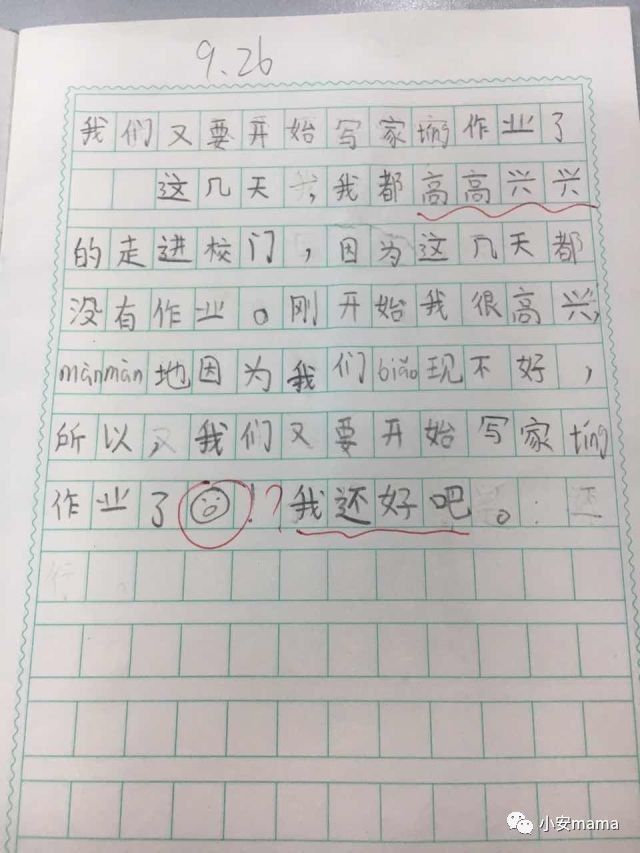 9.26
我们又要开始写家tíng作业了
这几天,我都高高兴兴
的走进校门,因为这几天都
没有作业。刚开始我很高兴,
mànmàn地因为我们biǎo现不好,
所以,我们又要开始写家tíng
作业了!?我还好吧。
小安mama